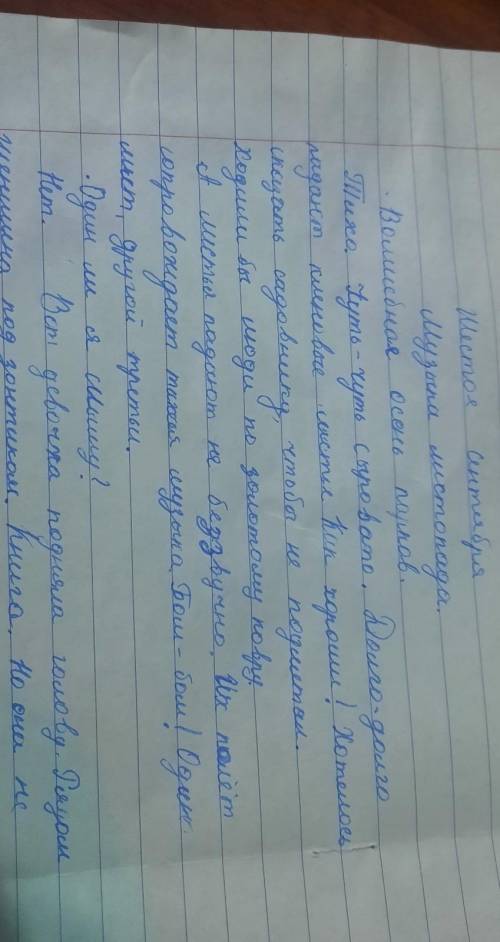 Шестое сентября
Музыка листопада.
Волшебное осень парков.
Тихо. Чуть-чуть сыровато. Долго-долго
падают кленовые листья. Как хороши! Хотелось
сказать садовнику, чтоба не подметал.
Ходили бы люди по золотому ковру.
А листья падают не беззвучно. Их полёт
сопровождает тихая музыка. Бом-бом! Один
лист, другой третьи.
Один ли я слышу?
Нет. Вот девочка подняла голову. Рядом
женщина под зонтиком. Книга. Но она не